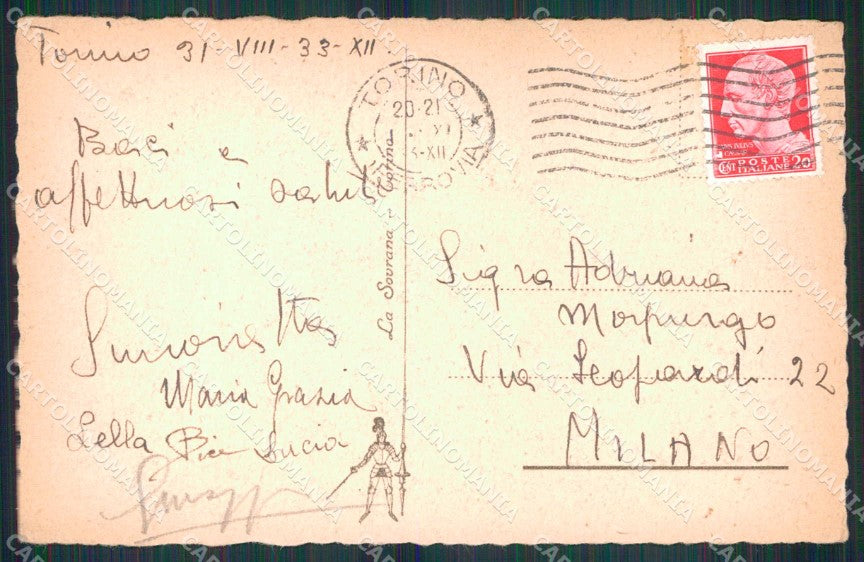 Torino 31 VIII-33-XII
Baci e
affettuosi saluti
Simonetta
Maria Grazia
Lella Bice Lucia
TORINO
20-21
FERROVIA
La Sovrana - Torino
POSTE
ITALIANE
CENT 20
Sig.ra Adriana
Morpurgo
Via Leopardi 22
MILANO
CARTOLINOMANIA